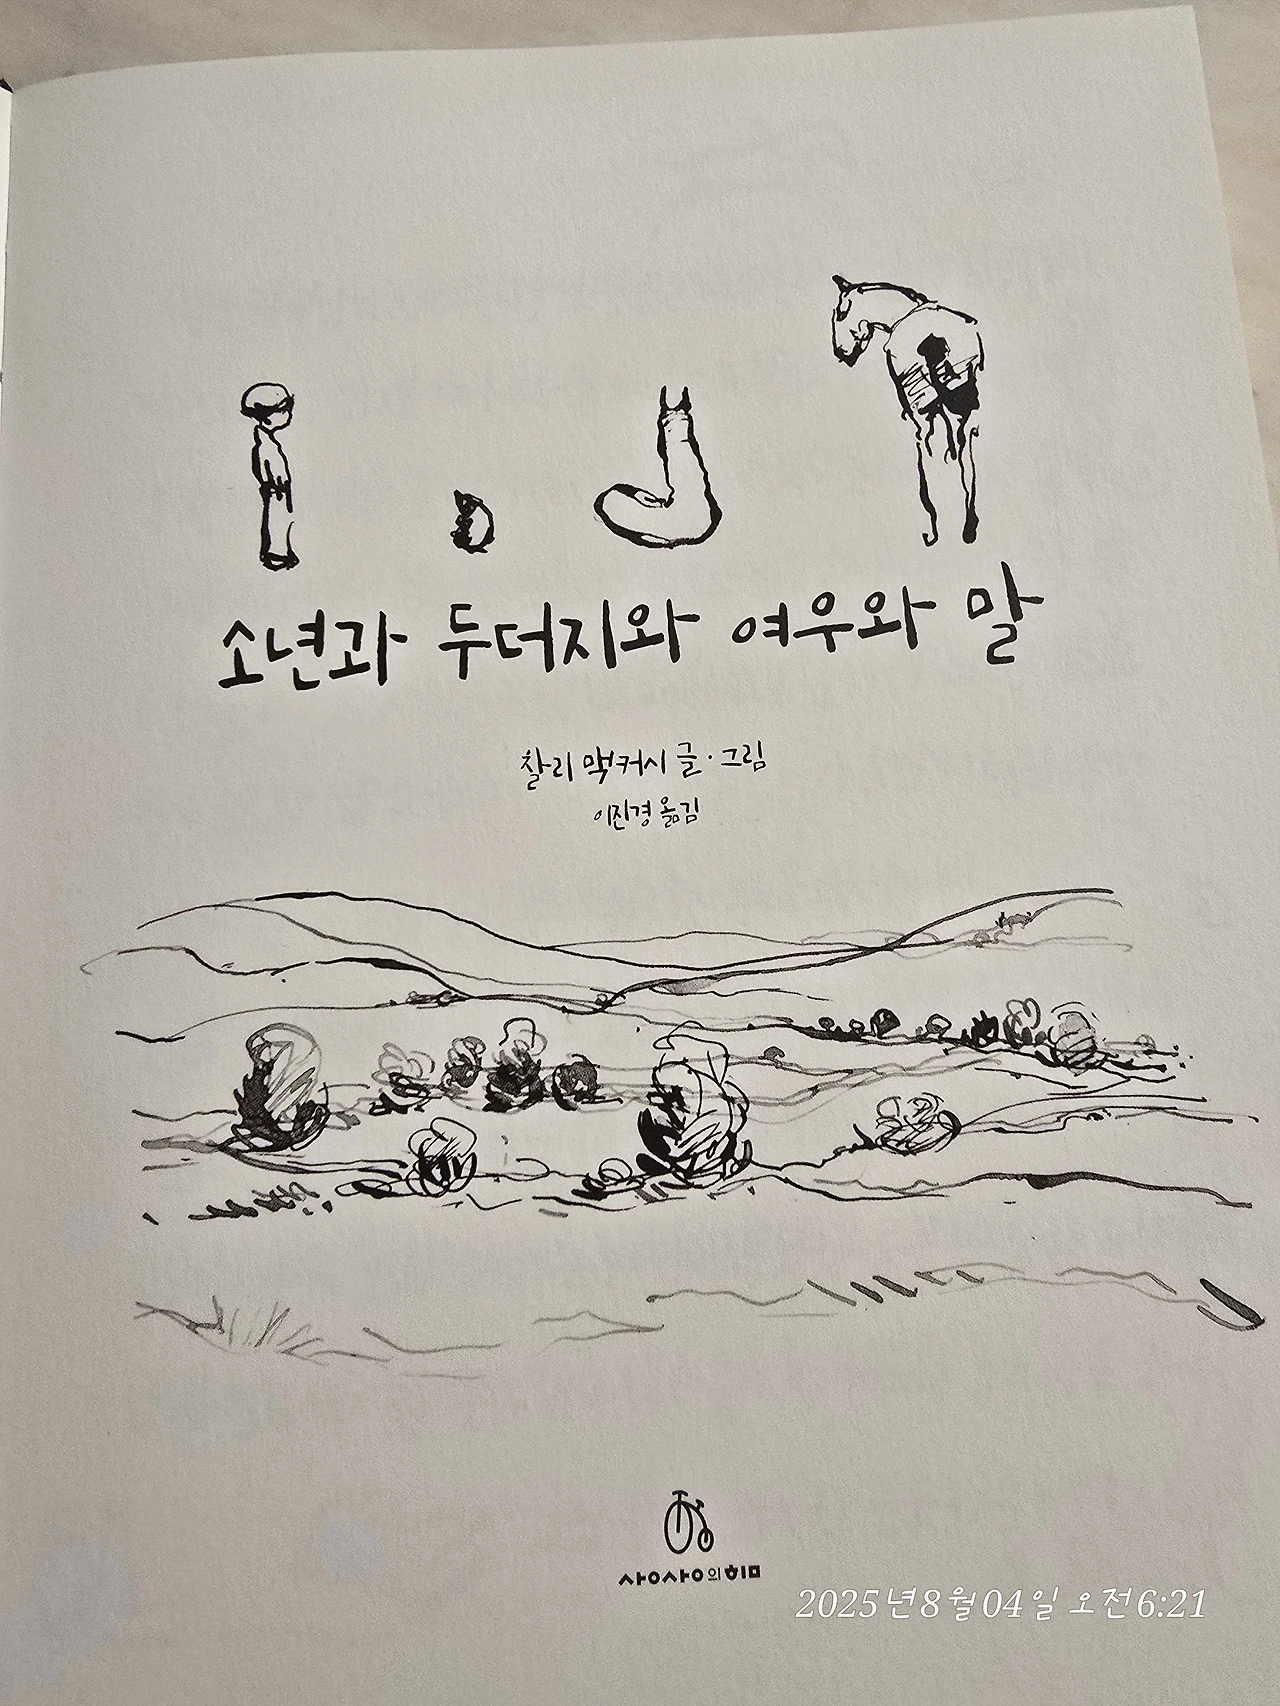 소년과 두더지와 여우와 말
찰리 맥커시 글·그림
이진경 옮김
상상의힘
2025년8월04일 오전6:21